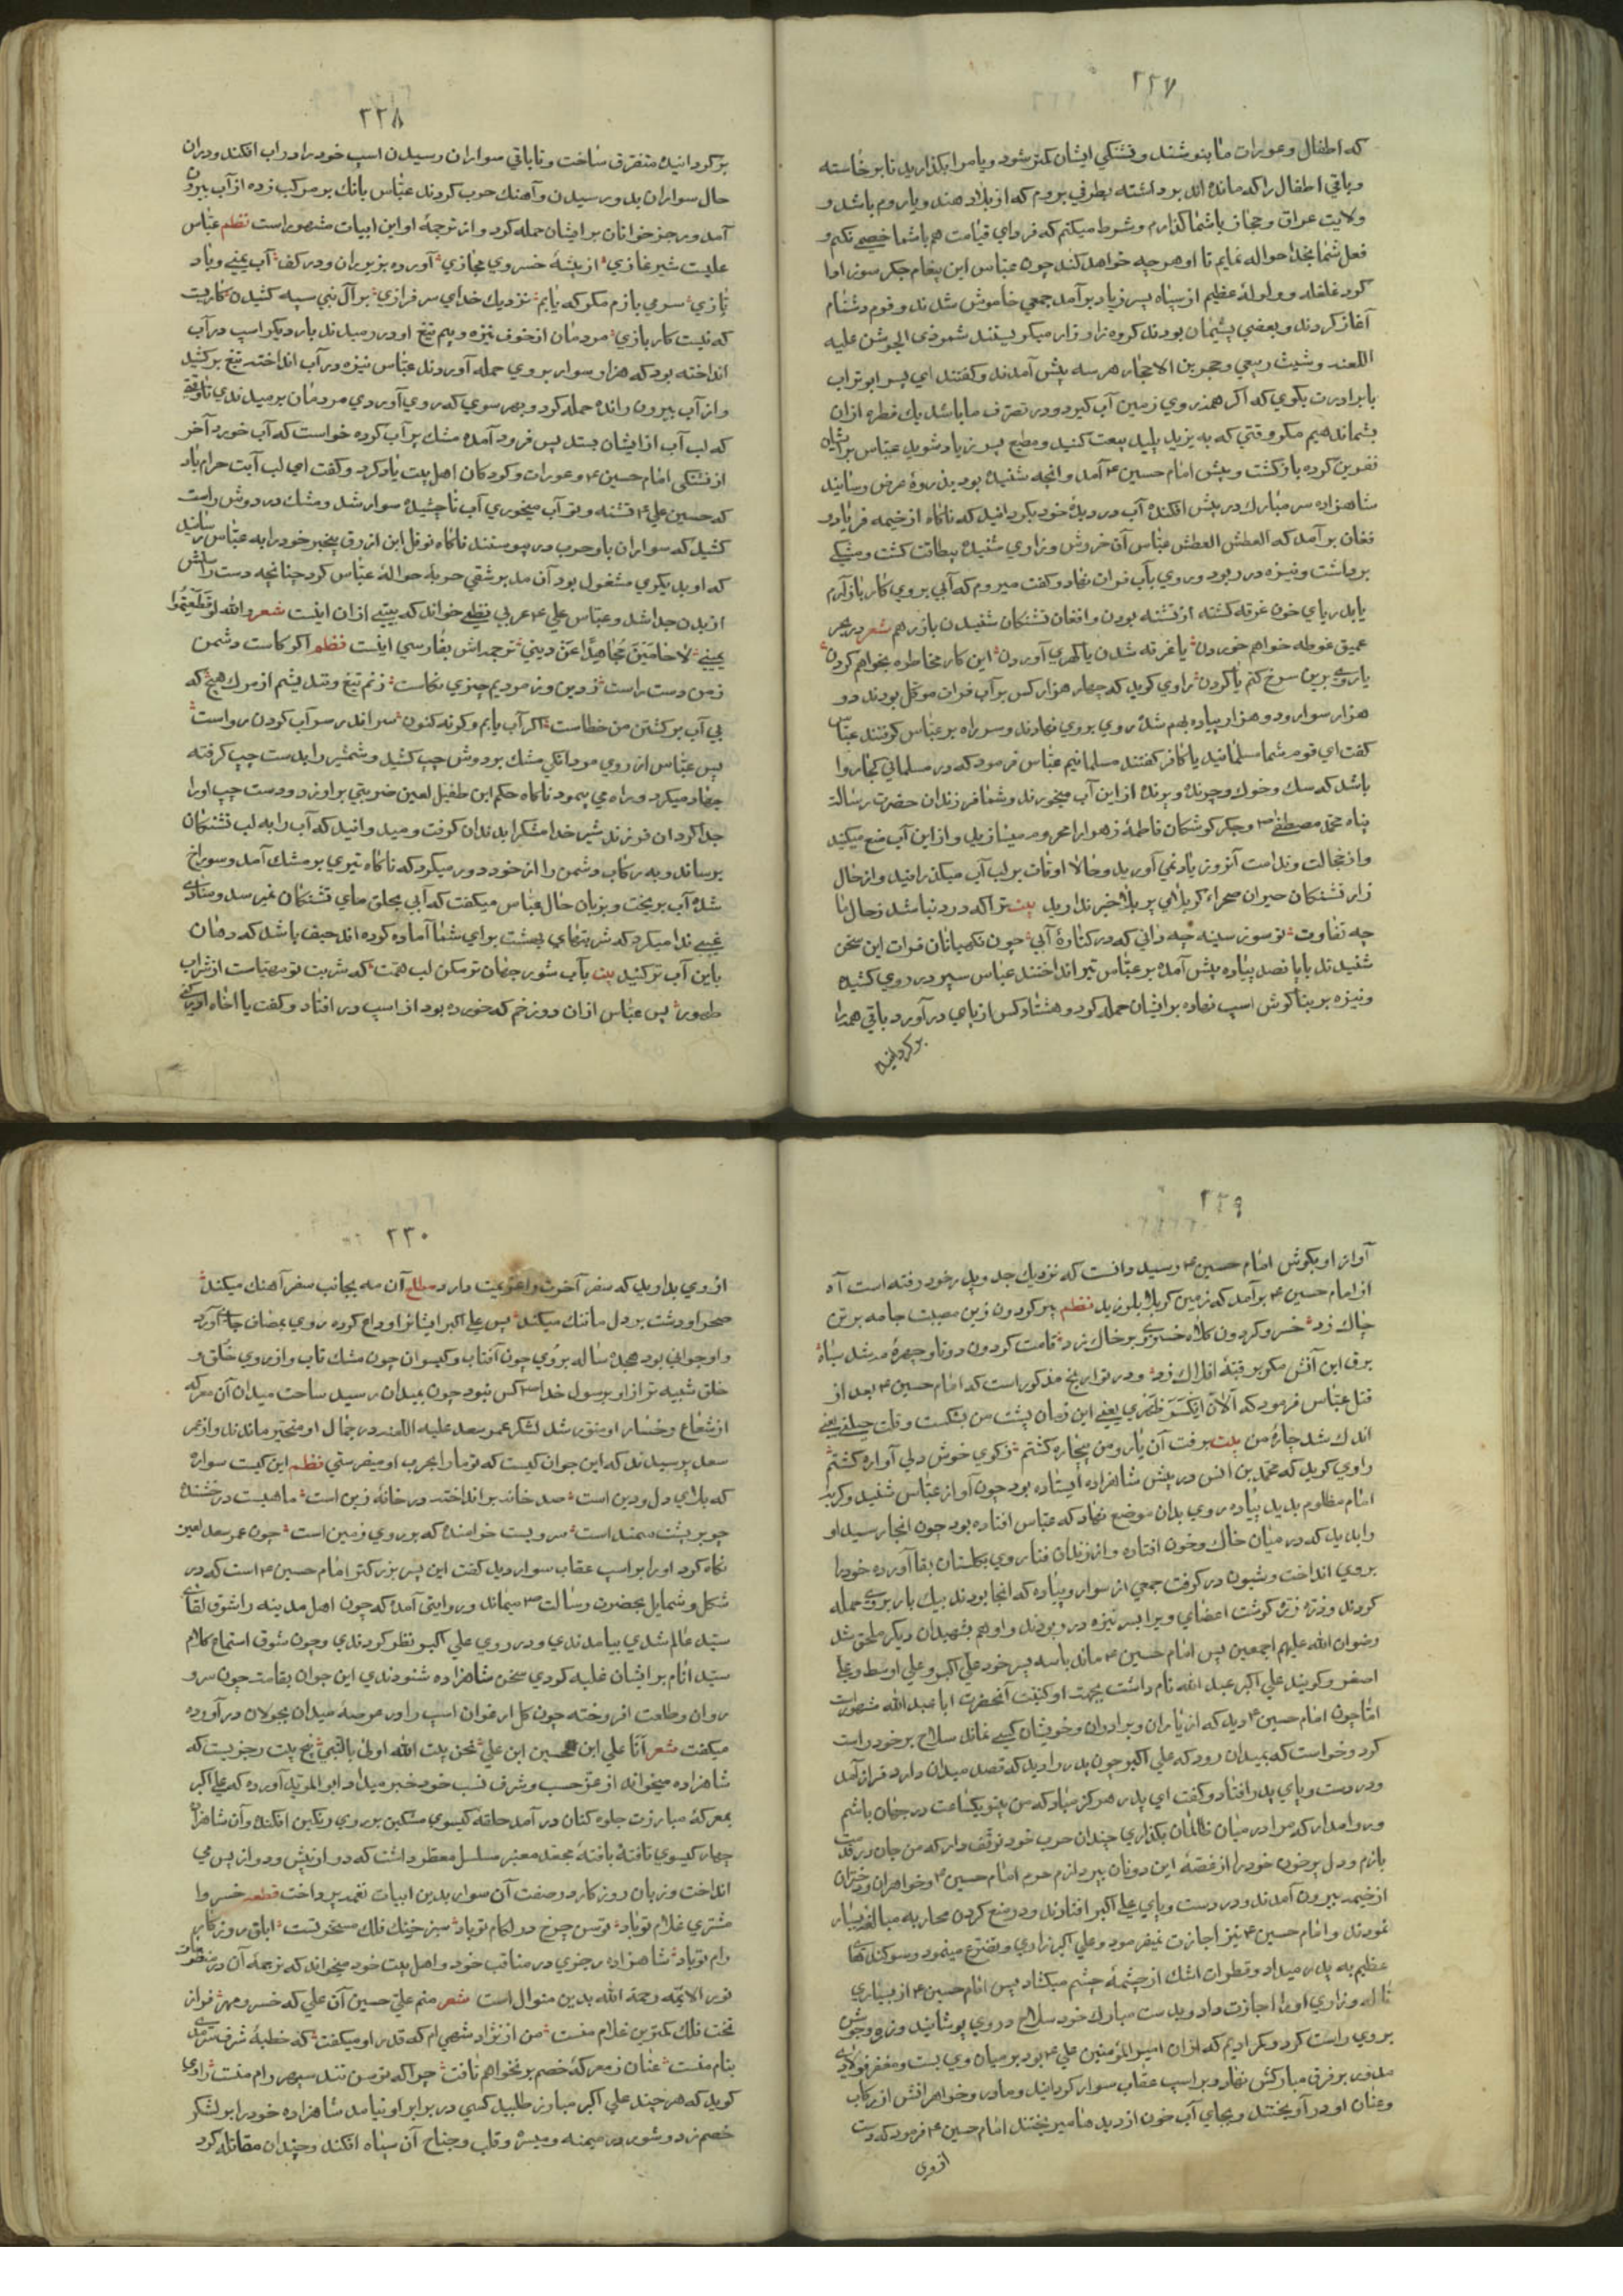 ۲۲۷
که اطفال و عورات ما بنوشند و تشنگی ایشان کمتر شود و یا مرا بکذارید تا برخاسته
و باقی اطفال را که مانده اند برداشته بطرفی بروم که از بلاد هند و یا روم باشد و
ولایت عراق و حجاز باشما کذارم و شرط میکنم که فردای قیامت هم باشما خصمی نکنم و
فعل شما بخدا حواله نمایم تا او هرچه خواهد کند چون عباس این پیغام جکر سوز ادا
کرد غلغله و ولولهٔ عظیم از سپاه پسر زیاد برآمد جمعی خاموش شدند و قوم دشنام
آغاز کردند و بعضی پشیمان بودند کروه زار زار میکریستند شمر ذی الجوشن علیه
اللعنه و شیث ربعی و حجر بن الاحجار هر سه پیش آمدند و کفتند ای پسر ابوتراب
با برادرت بکوی که اکر همه روی زمین آب کیرد و در تصرف ما باشد یک قطره ازان
بشما ندهیم مکر وقتی که به یزید پلید بیعت کنید و مطیع پسر زیاد شوید عباس بر ایشان
نفرین کرده بازکشت و پیش امام حسین ۴ آمد و آنچه شنیده بود بذروهٔ عرض رسانید
شاهزاده سر مبارک در پیش افکنده آب در دیدهٔ خود بکردانید که ناکاه از خیمه فریاد و
فغان برآمد که العطش العطش عباس آن خروش و زاری شنیده بیطاقت کشت و مشکی
برداشت و نیزه در ربود و روی بآب فرات نهاد و کفت میروم که آبی بروی کار باز آرم
یا بدریای خون غرقه کشته از تشنه بودن و افغان تشنکان شنیدن باز رهم شعر در بحر
عمیق غوطه خواهم خوردن یا غرقه شدن یا کهری آوردن این کار مخاطره بخواهم کردن
یا روی بدین سرخ کنم یا کردن راوی کوید که چهار هزار کس بر آب فرات موکل بودند دو
هزار سوار و دو هزار پیاده بهم شده روی بروی نهادند و سر راه بر عباس کرفتند عباس
کفت ای قوم شما مسلمانید یا کافر کفتند مسلمانیم عباس فرمود که در مسلمانی کجا روا
باشد که سک و خوک و چرنده و پرنده از این آب میخورند و شما فرزندان حضرت رسالت
پناه محمد مصطفی ص و جکر کوشکان فاطمهٔ زهرا را محروم میسازید و از این آب منع میکنید
و از خجالت و ندامت آنروز یاد نمی آورید و حالا اوقات بر لب آب میکذرانید و از حال
زار تشنکان حیران صحراء کربلای پر بلا خبر ندارید بیت ترا که درد نباشد ز حال ما
چه تفاوت تو سوز سینه چه دانی که در کنارهٔ آبی چون نکهبانان فرات این سخن
شنیدند با پانصد پیاده پیش آمده بر عباس تیر انداختند عباس سپر در روی کشیده
و نیزه بر بناکوش اسب نهاده بر ایشان حمله کرد و هشتاد کس از پا در آورد باقی همه را
برکردانیده
۲۲۸
برکردانیده متفرق ساخت و تا باقی سواران رسیدن اسب خود را در آب افکند و دران
حال سواران بدو رسیدن و آهنک حرب کردند عباس بانک بر مرکب زده از آب بیرون
آمد و رجز خوانان بر ایشان حمله کرد و از ترجمهٔ او این ابیات مشهور است نظم عباس
علیست شیر غازی از بیشهٔ خسروی حجازی آورده بزیر ران و در کف آب یمنی و باد
تازی سر می بازم مکر که یابم نزدیک خدای سرفرازی بر آل نبی سپه کشیدن کاریست
که نیست کار بازی مردمان از خوف نیزه و بیم تیغ او در رمیدند بار دیکر اسب در آب
انداخته بود که هزار سوار بروی حمله آوردند عباس نیزه در آب انداخته تیغ برکشید
و از آب بیرون رانده حمله کرد و بهر سوی که روی آوردی مردمان برمیدندی تا وقتی
که لب آب از ایشان بستد پس فرود آمده مشک پر آب کرده خواست که آب خورد آخر
از تشنکی امام حسین ۴ و عورات و کودکان اهل بیت یاد کرد و کفت ای لب آبت حرام باد
که حسین علی ۴ تشنه و تو آب میخوری آب ناچشیده سوار شد و مشک در دوش راست
کشید که سواران با و حرب در پیوستند ناکاه نوفل ابن ازرق بیخبر خود را به عباس رسانید
که او بدیکری مشغول بود آن مدبر شقی حربهٔ حوالهٔ عباس کرد چنانچه دست راستش
از بدن جدا شد و عباس علی ۴ عربی نظمی خواند که بیتی ازان اینست شعر و الله لو قَطَّعتُموا
یمینی لَاُحامِیَنَّ مُجاهِدًا عَن دینی ترجمه اش بفارسی اینست نظم اکر کاست دشمن
ز من دست راست ز دین ورزیم چیزی نکاست ز نم تیغ و تند لیثم از مرک هیچ که
بی آب برکشتن من خطاست اکر آب یابم وکرنه کنون سر اندر سر آب کردن رواست
پس عباس از روی مردانکی مشک بر دوش چپ کشید و شمشیر را بدست چپ کرفته
جهاد میکرد و راه می پیمود ناکاه حکم ابن طفیل لعین ضربتی بر او زد و دست چپ او را
جدا کرد آن فرزند شیر خدا مشک را بدندان کرفت و میدوانید که آب را به لب تشنکان
برساند و به رکاب دشمن را از خود دور میکرد که ناکاه تیری بر مشک آمد و سوراخ
شده آب بریخت و بزبان حال عباس میکفت که آبی بحلق مای تشنکان نمیرسد و منادی
غیبی ندا میکرد که شربتهای بهشت برای شما آماده کرده اند حیف باشد که دهان
باین آب تر کنید بیت بآب شور جهان تر مکن لب همت که شربت تو مهیاست از شراب
طهور پس عباس ازان دو زخم که خورده بود از اسب در افتاد و کفت یا اخاه ادرکنی
۲۲۹
آواز او بکوش امام حسین ۴ رسید دانست که نزدیک جد و پدر خود رفته است آه
از امام حسین ۴ برآمد که زمین کربلا بلرزید نظم پیر کردون زین مصیبت جامه بر تن
چاک زد خسرو کردون کلاه خسروی بر خاک زد قامت کردون دوتا و چهرهٔ مه شد سیاه
برق این آتش مکر بر قبهٔ افلاک زد و در تواریخ مذکور است که امام حسین ۴ بعد از
قتل عباس فرمود که الآن اِنکَسَرَ ظَهری یعنی این زمان پشت من بشکست و قلت حیلتی یعنی
اندک شد چارهٔ من بیت برفت آن یار و من بیچاره کشتم ز کوی خوش دلی آواره کشتم
راوی کوید که محمد بن انس در پیش شاهزاده ایستاده بود چون آواز عباس شنید و کریهٔ
امام مظلوم بدید پیاده روی بدان موضع نهاد که عباس افتاده بود چون انجا رسید او
را بدید که در میان خاک و خون افتاده و از زندان فنا روی بکلستان بقا آورده خود را
بروی انداخت و شیون در کرفت جمعی از سوار و پیاده که انجا بودند بیک بار بروی حمله
کردند و ذرهٔ ذرهٔ کوشت اعضای ویرا بسر نیزه در ربودند و او هم بشهیدان دیکر ملحق شد
رضوان الله علیهم اجمعین پس امام حسین ۴ ماند با سه پسر خود علی اکبر و علی اوسط و علی
اصغر و کویند علی اکبر عبد الله نام داشت بجهت او کنیت آنحضرت ابا عبد الله مشهور است
امّا چون امام حسین ۴ دید که از یاران و برادران و خویشان کسی نماند سلاح بر خود راست
کرد و خواست که بمیدان رود که علی اکبر چون پدر را دید که قصد میدان دارد فراز آمد
و در دست و پای پدر افتاد و کفت ای پدر هرکز مباد که من بیتو یکساعت در جهان باشم
و روا مدار که مرا در میان ظالمان بکذاری چندان حرب خود توقف دار که من جان در قدمت
بازم و دل پر خون خود را از غصهٔ این دونان بپردازم حرم امام حسین ۴ و خواهران و دختران
از خیمه بیرون آمدند و در دست و پای علی اکبر افتادند و در منع کردن محاربه مبالغه بسیار
نمودند و امام حسین ۴ نیز اجازت نمیفرمود و علی اکبر زاری و تضرع مینمود و سوکندهای
عظیم به پدر میداد و قطرات اشک از چشمهٔ چشم میکشاد پس امام حسین ۴ از بسیاری
ناله و زاری او را اجازت داد و بدست مبارک خود سلاح در وی پوشانید و زره و جوشن
بروی راست کرد و کمر ادیم که ازان امیر المؤمنین علی ۴ بود بر میان وی بست و مغفر فولادی
مدور بر فرق مبارکش نهاد و بر اسب عقاب سوار کردانید و مادر و خواهرانش از رکاب
و عنان او در آویختند و بجای آب خون از دیدها میریختند امام حسین ۴ فرمود که دست
از وی
۲۳۰
از وی بدارید که سفر آخرت را عزیمت دارد مطلع آن مه بجانب سفر آهنک میکند
صحرا و دشت بر دل ما تنک میکند پس علی اکبر ایشانرا وداع کرده روی بمصاف جای آورد
و او جوانی بود هجده ساله بروی چون آفتاب و کیسوان چون مشک ناب و از روی خلق و
خلق شبیه تر از او برسول خدا ص کس نبود چون بمیدان رسید ساحت میدان آن معرکه
از شعاع رخسار او منور شد لشکر عمر سعد علیه اللعنه در جمال او متحیر ماندند و از عمر
سعد پرسیدند که این جوان کیست که تو ما را بحرب او میفرستی نظم این کیست سواره
که بلای دل و دین است صد خانه بر انداخته در خانهٔ زین است ماهیست درخشنده
چو بر پشت سمند است سرویست خرامنده که بر روی زمین است چون عمر سعد لعین
نکاه کرد او را بر اسب عقاب سوار دید کفت این پسر بزرکتر امام حسین ۴ است که در
شکل و شمایل بحضرت رسالت ص میماند و روایتی آمده که چون اهل مدینه را شوق لقای
سیّد عالم شدی بیامدندی و در روی علی اکبر نظر کردندی و چون شوق استماع کلام
سیّد انام بر ایشان غلبه کردی سخن شاهزاده شنودندی این جوان بقامت چون سرو
روان و طلعت افروخته چون کل ارغوان اسب را در عرصهٔ میدان بجولان در آورده
میکفت شعر أنا علی ابن حسین ابن علی نحن بیت الله اولیٰ بالنبی پنج بیت رجزیست که
شاهزاده میخواند از عز حسب و شرف نسب خود خبر میداد ابو الموید آورده که علی اکبر
بمعرکهٔ مبارزت جلوه کنان در آمد حلقه کیسوی مشکین بر روی رنکین افکنده و آن شاهزاده
چهار کیسوی تافتهٔ بافتهٔ مجعد معنبر مسلسل معطر داشت که دو از پیش و دو از پس می
انداخت و زبان روزکار در صفت آن سوار بدین ابیات نغمه پرداخت قطعه خسروا
مشتری غلام تو باد توسن چرخ در لکام تو باد سبز خنک فلک مسخر تست ابلق روزکار
رام تو باد شاهزاده رجزی در مناقب خود و اهل بیت خود میخواند که ترجمهٔ آن در نظم
نور الایمّه رحمة الله بدین منوال است شعر منم علی حسین آن علی که خسرو مهر فراز
تخت فلک کمترین غلام منست من از نژاد شهی ام که قدر او میکفت که خطبهٔ شرف سرمدی
بنام منست عنان ز معرکهٔ خصم بر نخواهم تافت چرا که توسن تند سپهر رام منست راوی
کوید که هر چند علی اکبر مبارز طلبید کسی در برابر او نیامد شاهزاده خود را بر لشکر
خصم زد و شور در میمنه و میسره و قلب و جناح آن سپاه افکند و چندان مقاتله کرد